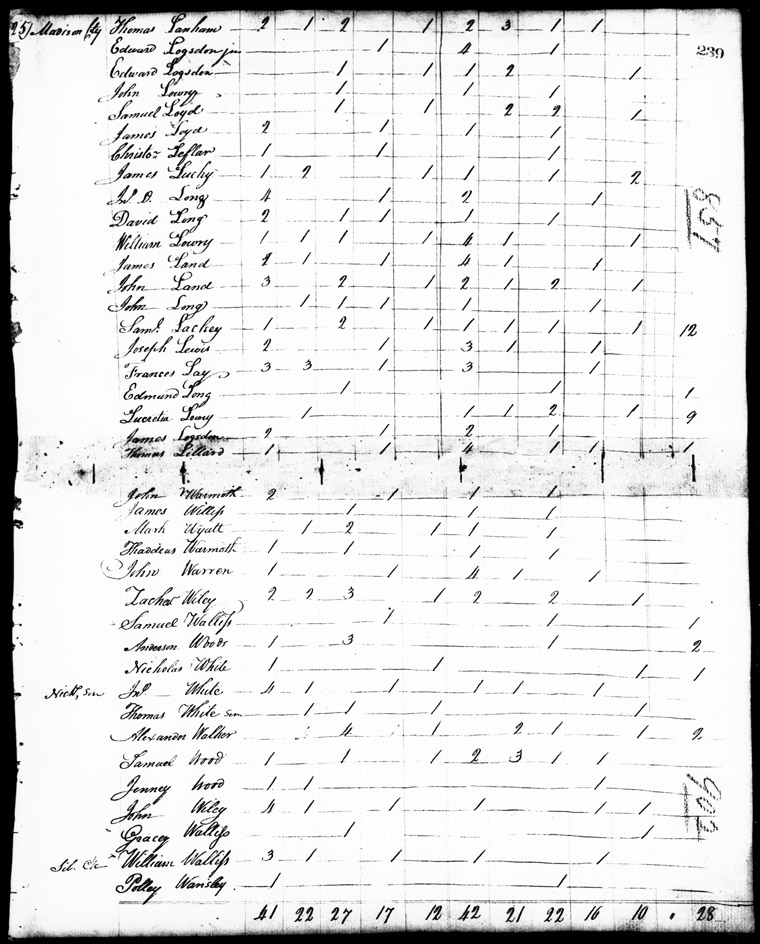 25) Madison Cty Thomas Lanham 2 1 2 1 2 3 1 1
Edward Logsdon jun 1 4 1
239
Edward Logsdon 1 1 1 2 1
John Lowry 1 1 1
Samuel Loyd 1 1 2 2 1
James Loyd 2 1 1 1
Christo Leflar 1 1 1
James Lucky 1 2 1 1 1 2
Jno. D. Long 4 1 2 1
David Long 2 1 1 1 1
William Lowry 1 1 1 1 4 1 1
857
James Land 2 1 1 4 1 1
John Land 3 2 1 2 1 2 1
John Long 1 1 1 1 1
Saml. Lackey 1 2 1 1 1 1 1 12
Joseph Lewis 2 1 3 1 1
Frances Lay 3 3 1 3 1
Edmund Long 1 1 1
Lucretia Lowry 1 1 1 2 1 9
James Logsdon 2 1 2 1
Thomas Lillard 1 1 4 1 1 1
John Warmoth 2 1 1 1
James Willis 1 1 1
Mark Wyatt 1 2 1 1 1
Thaddeus Warmoth 1 1 1 1
John Warren 1 1 4 1 1
Zachar Wiley 2 2 3 1 2 2 1
Samuel Walliss 1 1 1
Anderson Woods 1 3 1 2
Nicholas White 1 1 1 1
Jno. White 4 1 1 1 1 1
Thomas White sen 1 1 1 1
Alexander Walker 1 4 1 2 1 1 2
Samuel Wood 1 1 1 2 3 1 1
Jenney Wood 1 1 1
John Wiley 4 1 1 1 1 1
902
Gracey Walliss 1 1
William Walliss 3 1 1 1 1
Polley Wansley 1 1
41 22 27 17 12 42 21 22 16 10 28